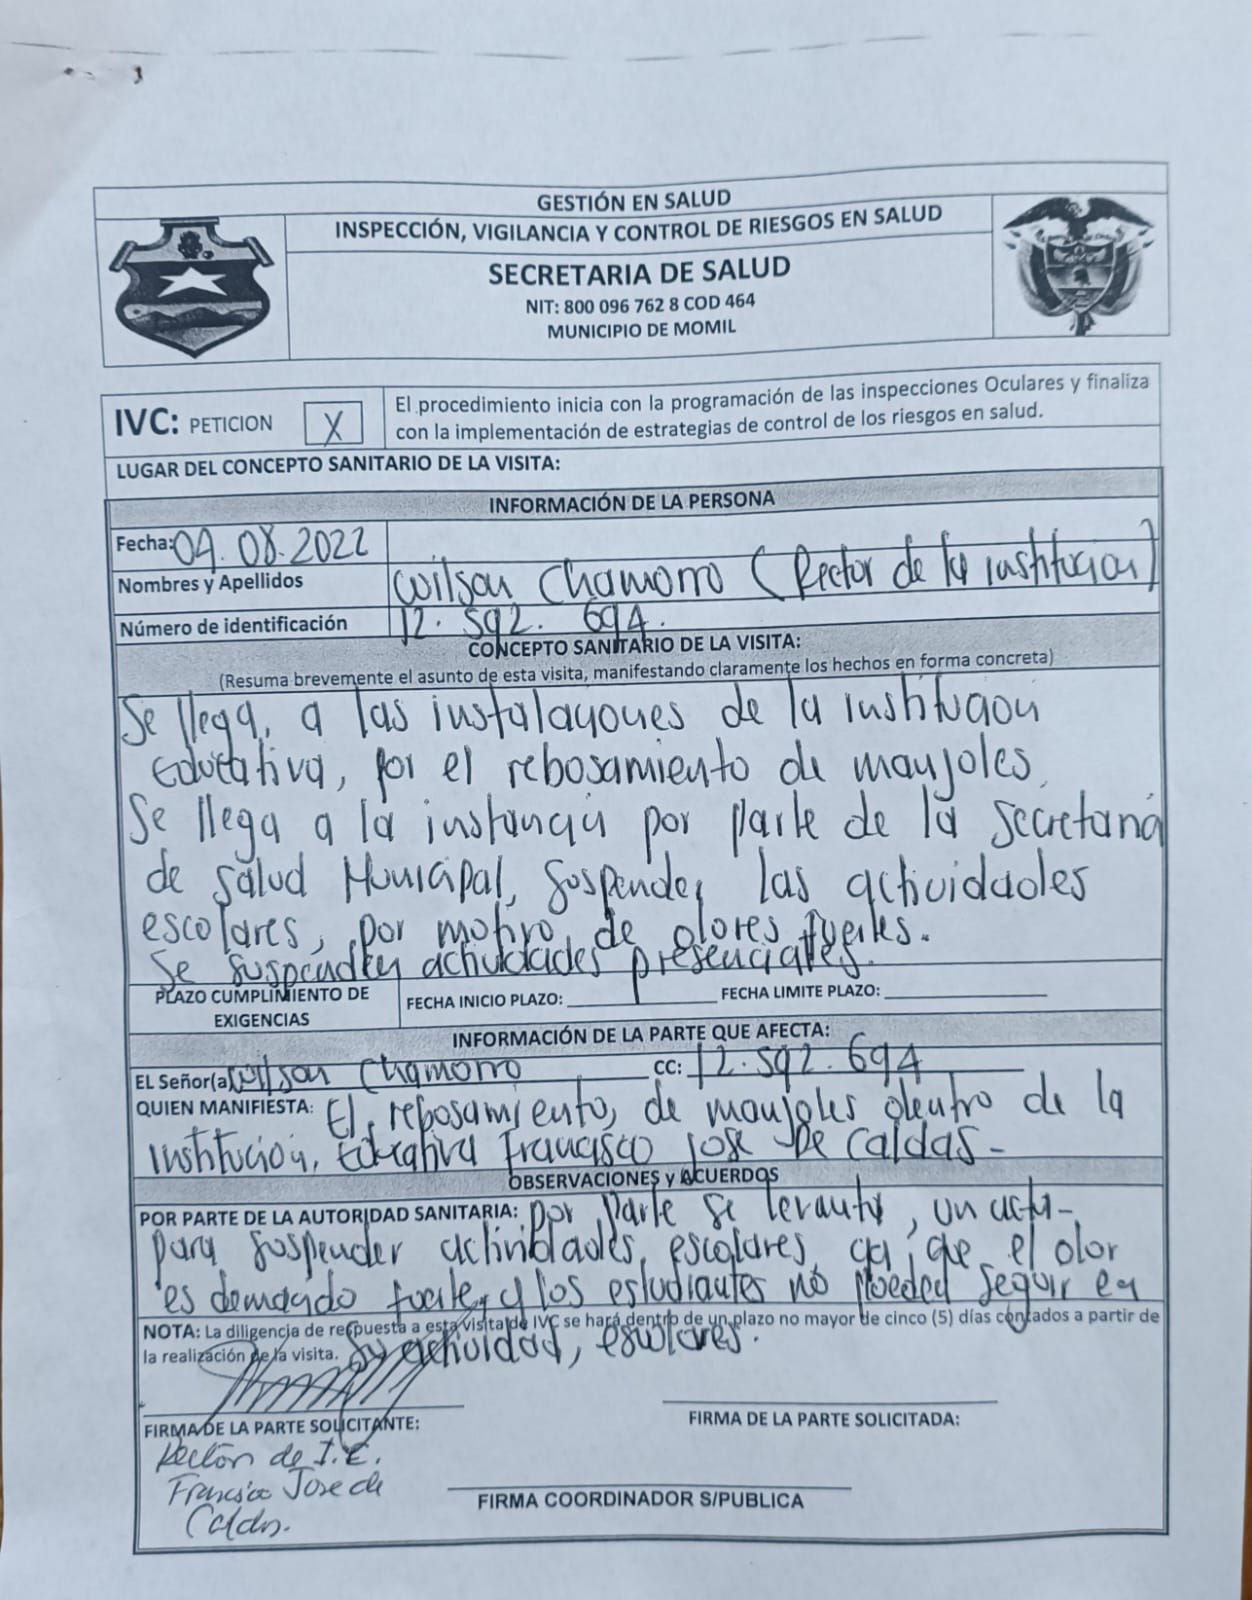 GESTIÓN EN SALUD
INSPECCIÓN, VIGILANCIA Y CONTROL DE RIESGOS EN SALUD
SECRETARIA DE SALUD
NIT: 800 096 762 8 COD 464
MUNICIPIO DE MOMIL
IVC: PETICION X
El procedimiento inicia con la programación de las inspecciones Oculares y finaliza
con la implementación de estrategias de control de los riesgos en salud.
LUGAR DEL CONCEPTO SANITARIO DE LA VISITA:
INFORMACIÓN DE LA PERSONA
Fecha: 04.08.2022
Nombres y Apellidos Wilson Chamorro (Rector de la institucion)
Número de identificación 12.592.694.
CONCEPTO SANITARIO DE LA VISITA:
(Resuma brevemente el asunto de esta visita, manifestando claramente los hechos en forma concreta)
Se llega, a las instalaciones de la institucion
Educativa, por el rebosamiento de manjoles.
Se llega a la instancia por parte de la secretaria
de salud Municipal, suspender las actividades
escolares, por motivo de olores fuertes.
Se suspenden actividades presenciales.
PLAZO CUMPLIMIENTO DE
EXIGENCIAS
FECHA INICIO PLAZO: FECHA LIMITE PLAZO:
INFORMACIÓN DE LA PARTE QUE AFECTA:
EL Señor(a Wilson Chamorro CC: 12.592.694
QUIEN MANIFIESTA: El, rebosamiento, de manjoles dentro de la
institucion, Educativa Francisco Jose De Caldas-
OBSERVACIONES y ACUERDOS
POR PARTE DE LA AUTORIDAD SANITARIA: por parte se levanta, un acta-
para suspender actividades, escolares, ya que el olor
es demaciado fuerte, y los estudiantes no pueded seguir en
NOTA: La diligencia de respuesta a esta visita de IVC se hará dentro de un plazo no mayor de cinco (5) días contados a partir de
la realización de la visita. su actividad, escolares.
FIRMA DE LA PARTE SOLICITANTE:
FIRMA DE LA PARTE SOLICITADA:
Rector de I.E.
Francisco Jose de
Caldas.
FIRMA COORDINADOR S/PUBLICA